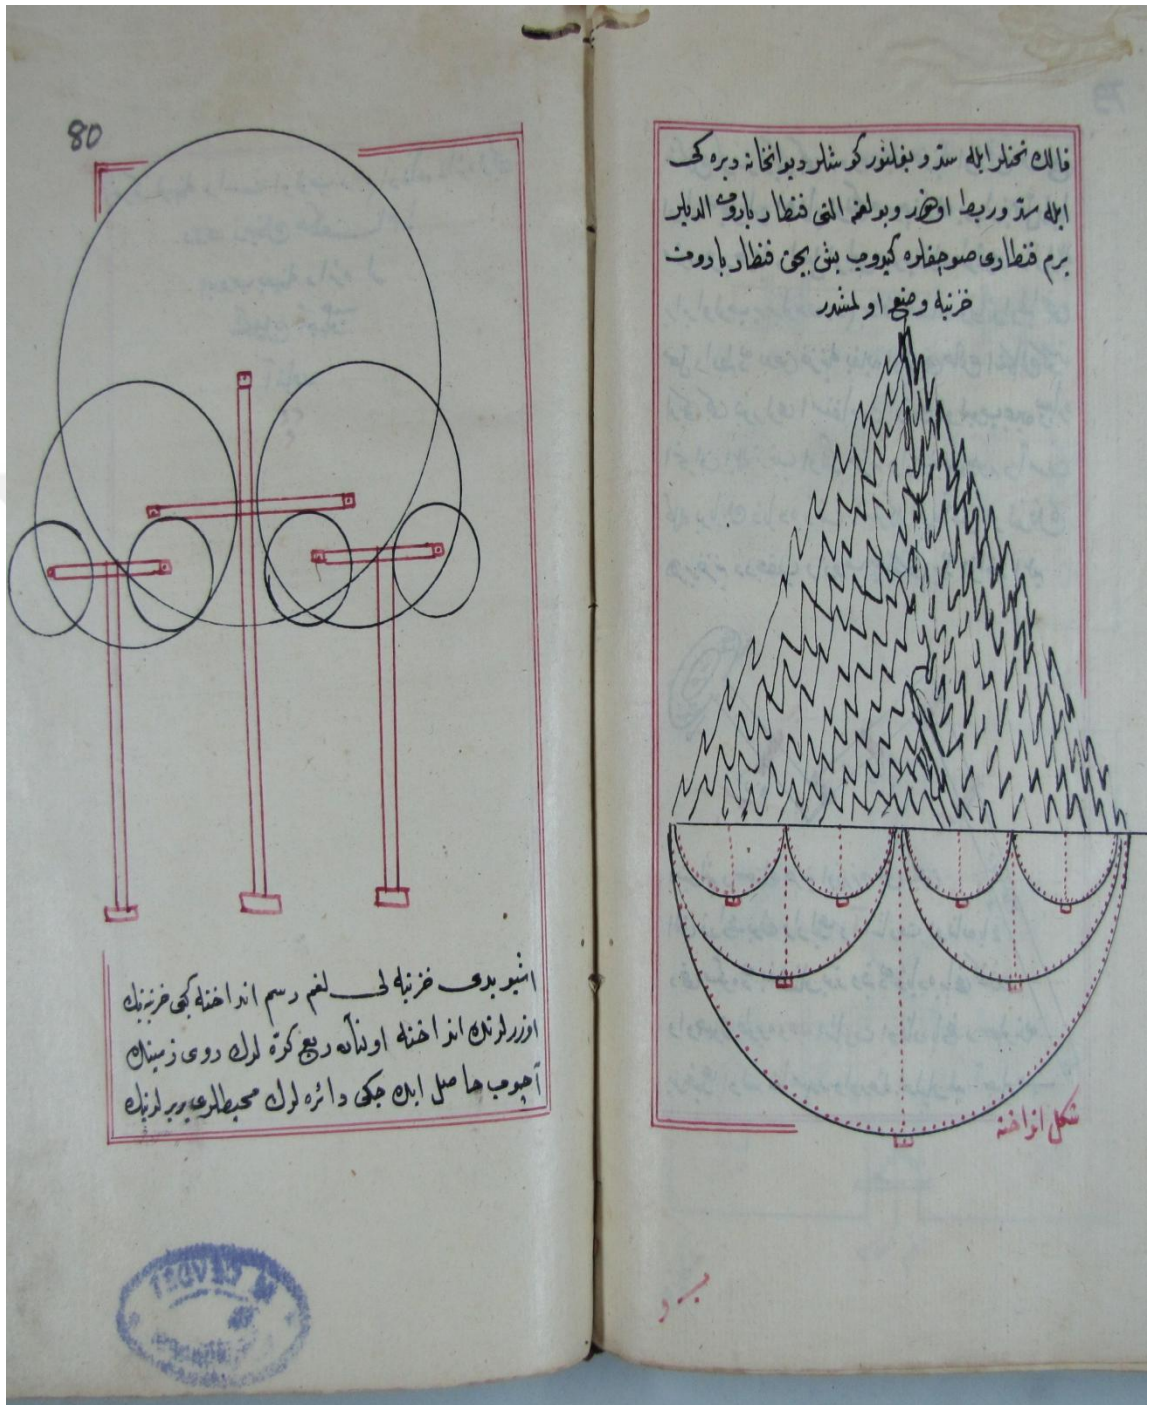 قالك تختلر ايله سد و بغلنور كوشلر ديوانخانه ديره كی
ايله سد و ربط اولنور و بو لغم التی قنطار باروت الدیلر
يرم قنطاری صوجقلره كيدوب بش بچق قنطار باروت
خزنيه وضع اولمشدر
شكل انداخته
80
اشبو يدی خزنيه لی لغم رسم انداخته كبی خزينه نك
اوزرلرندن انداخته اولنان ربع كره لرك روی زمينك
آچوب حاصل ايده جكی دائره لرك محيطلری بربرلرينك
M. CEVDET